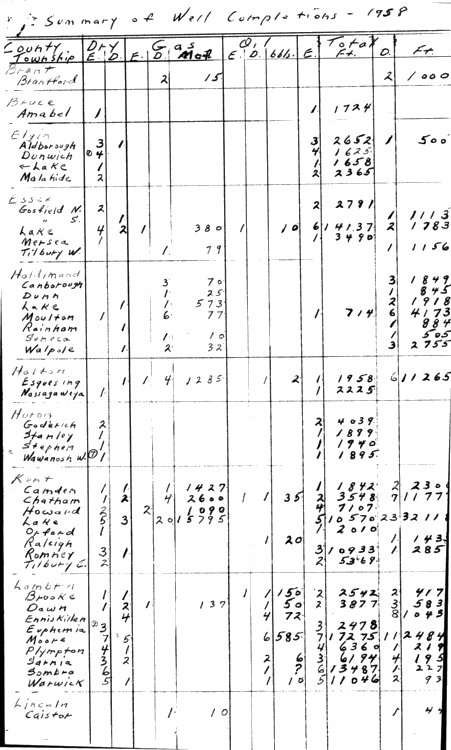 Summary of Well Completions - 1958
County Dry Gas Oil Total
Township E. D. E. D. Mcf E. D. bbls. E. Ft. D. Ft.
Brant
Brantford 2 15 2 1000
Bruce
Amabel 1 1 1724
Elgin
Aldborough 3 1 3 2652 1 500
Dunwich 4 4 1625
Lake 1 1 1658
Malahide 2 2 2365
Essex
Gosfield N. 2 2 2791
" S. 1 1 1113
Lake 4 2 1 380 1 10 6 14137 2 1783
Mersea 1 1 3490
Tilbury W. 1 79 1 1156
Haldimand
Canborough 3 70 3 1849
Dunn 1 25 1 845
Lake 1 1 573 2 1918
Moulton 1 6 77 1 714 6 4173
Rainham 1 1 884
Seneca 1 10 1 505
Walpole 1 2 32 3 2755
Halton
Esquesing 1 1 4 1285 1 2 1 1958 6 11265
Nassagaweya 1 1 2225
Huron
Goderich 2 2 4039
Stanley 1 1 1899
Stephen 1 1 1940
Wawanosh W. 1 1 1895
Kent
Camden 1 1 1 1427 1 1842 2 230
Chatham 1 2 4 2600 1 1 35 2 3548 7 1177
Howard 2 2 1090 4 7107
Lake 5 3 20 15795 5 10570 23 3211
Orford 1 1 2010
Raleigh 1 20 1 143
Romney 3 1 3 10933 1 285
Tilbury E. 2 2 5369
Lambton
Brooke 1 1 1 1 150 2 2542 2 417
Dawn 1 2 1 137 1 50 2 3877 3 583
Enniskillen 4 4 72 8 1043
Euphemia 3 3 2478
Moore 7 5 6 585 7 17275 11 2484
Plympton 4 1 4 6360 1 219
Sarnia 3 2 2 6 3 6194 4 195
Sombra 6 1 ? 6 13487 1 227
Warwick 5 1 1 10 5 11046 2 93
Lincoln
Caistor 1 10 1 4